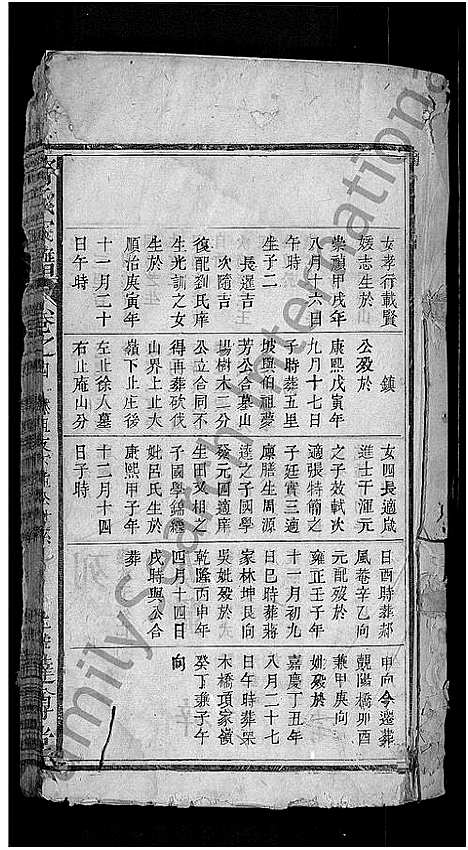 女孝行載賢
媛志生於
崇禎甲戌年
八月十六日
午時
生子二
長遜吉
次隨吉
復配劉氏庠
生光訓之女
生於
順治庚寅年
十一月二十
日午時
鎮
公歿於
康熙戊寅年
九月十七日
子時葬五里
坡與伯祖夢
芳公合墓山
場樹木二分
公立合同不
得再葬砍伐
山界上止大
嶺下止庄後
左止徐人墓
右止庵山分
女四長適歲
進士干渾元
之子效軾次
適張特簡之
子廷實三適
廩膳生周源
達之子國學
發元四適庠
生田又相之
子國學錦
妣呂氏生於
康熙甲子年
十二月十四
日子時
日酉時葬郝
風菴辛乙向
元配歿於
雍正壬子年
十一月初九
日巳時葬蔣
家林坤艮向
吳妣歿於
乾隆丙申年
四月十四日
戌時與公合
葬
申向今遷葬
觀陽橋卯酉
兼甲庚向
妣歿於
嘉慶丁丑年
八月二十七
日午時葬杲
木橋項家嶺
癸丁兼子午
向
氏家譜
卷之四